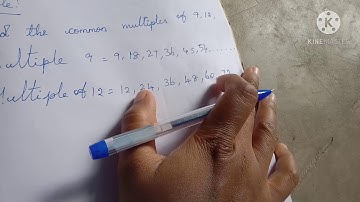 the common multiples of 9,12,
ultiple 9 = 9,18,27,36,45,54,......
Multiple of 12 = 12,24,36,48,60,72
KINEMASTER